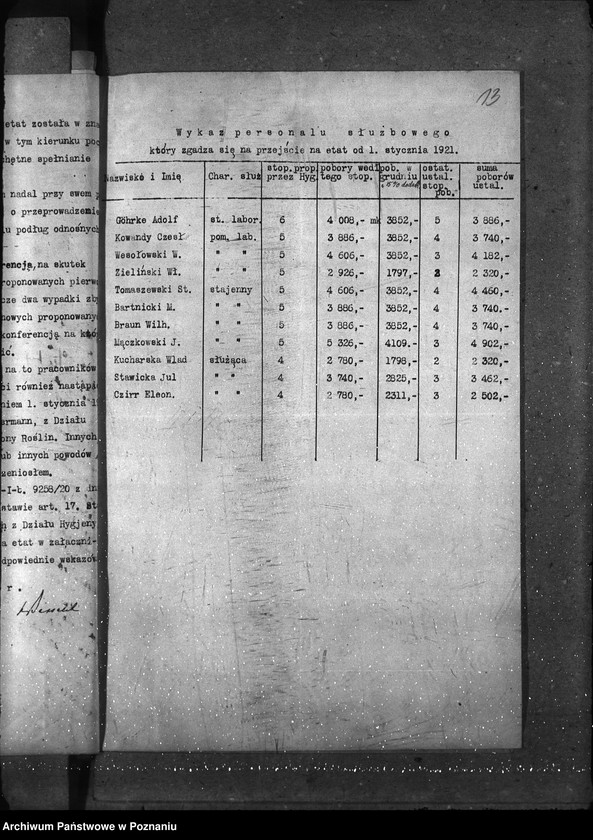 etat została w
w tym kierunku
chętne spełnianie
nadal przy swem
o przeprowadzenie
podług odnośnych
na skutek
proponowanych
dwa wypadki
proponowany
konferencją na
na to pracowników
również
niem 1. stycznia
z Działu
Roślin. Innych
innych powodów
zeniosłem.
-I-b. 9258/20 z
art. 17.
z Działu Hygjeny
etat w
wskazów
r.
13
Wykaz personalu służbowego
który zgadza się na przejście na etat od 1. stycznia 1921.
Nazwisko i Imię Char. służ stop. prop. przez Hyg. pobory wedł tego stop. pob. w grudniu ostat. ustal. stop. pob. suma poborów ustal.
Göhrke Adolf st. labor. 6 4 008,- mk 3852,- 5 3 886,-
Kowandy Czesł pom. lab. 5 3 886,- 3852,- 4 3 740,-
Wesołowski W. " " 5 4 606,- 3852,- 3 4 182,-
Zieliński Wł. " " 5 2 926,- 1797,- 2 2 320,-
Tomaszewski St. stajenny 5 4 606,- 3852,- 4 4 460,-
Bartnicki M. " " 5 3 886,- 3852,- 4 3 740.-
Braun Wilh. " " 5 3 886,- 3852,- 4 3 740,-
Mączkowski J. " " 5 5 326,- 4109.- 3 4 902,-
Kucharska Wład służąca 4 2 780,- 1798,- 2 2 320,-
Stawicka Jul " " 4 3 740,- 2825,- 3 3 462,-
Czirr Eleon. " " 4 2 780,- 2311,- 3 2 502,-
Archiwum Państwowe w Poznaniu